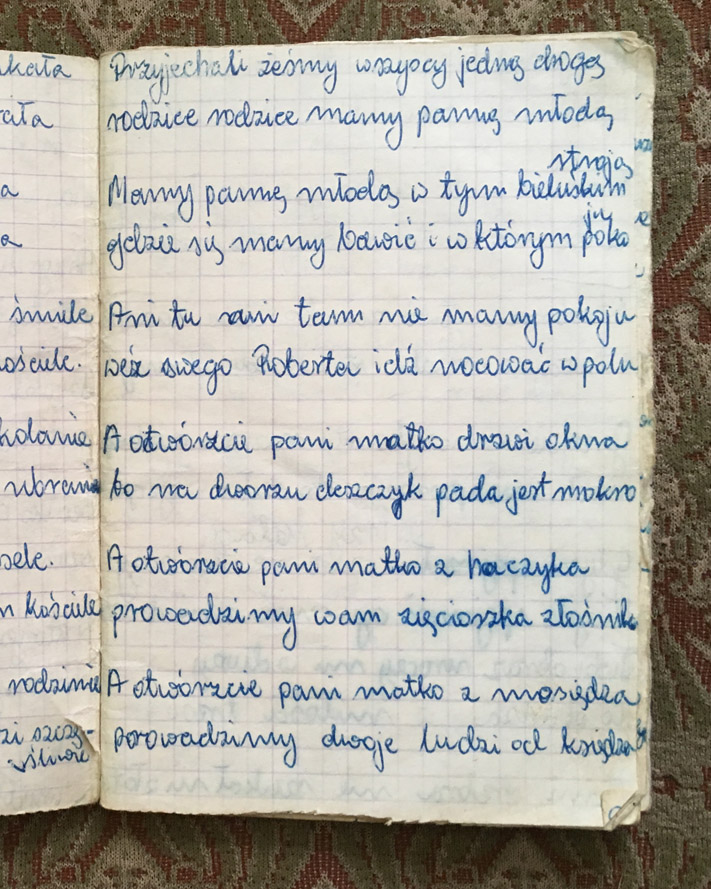 śmiele
kolanie
ubranie
kościele
rodzinie
szczę-
śliwie
Przyjechali żeśmy wszyscy jedną drogą
rodzice rodzice mamy pannę młodą
stroją
Mamy pannę młodą w tym bieluśkim
ju
gdzie się mamy bawić i w którym poko
Ani tu ani tam nie mamy pokoju
weź swego Roberta i idź nocować w polu
A otwórzcie pani matko drzwi okna
bo na dworzu deszczyk pada jest mokro
A otwórzcie pani matko z haczyka
prowadzimy wam zięcioszka złośnik
A otwórzcie pani matko z mosiędza
prowadzimy dwoje ludzi od księdza